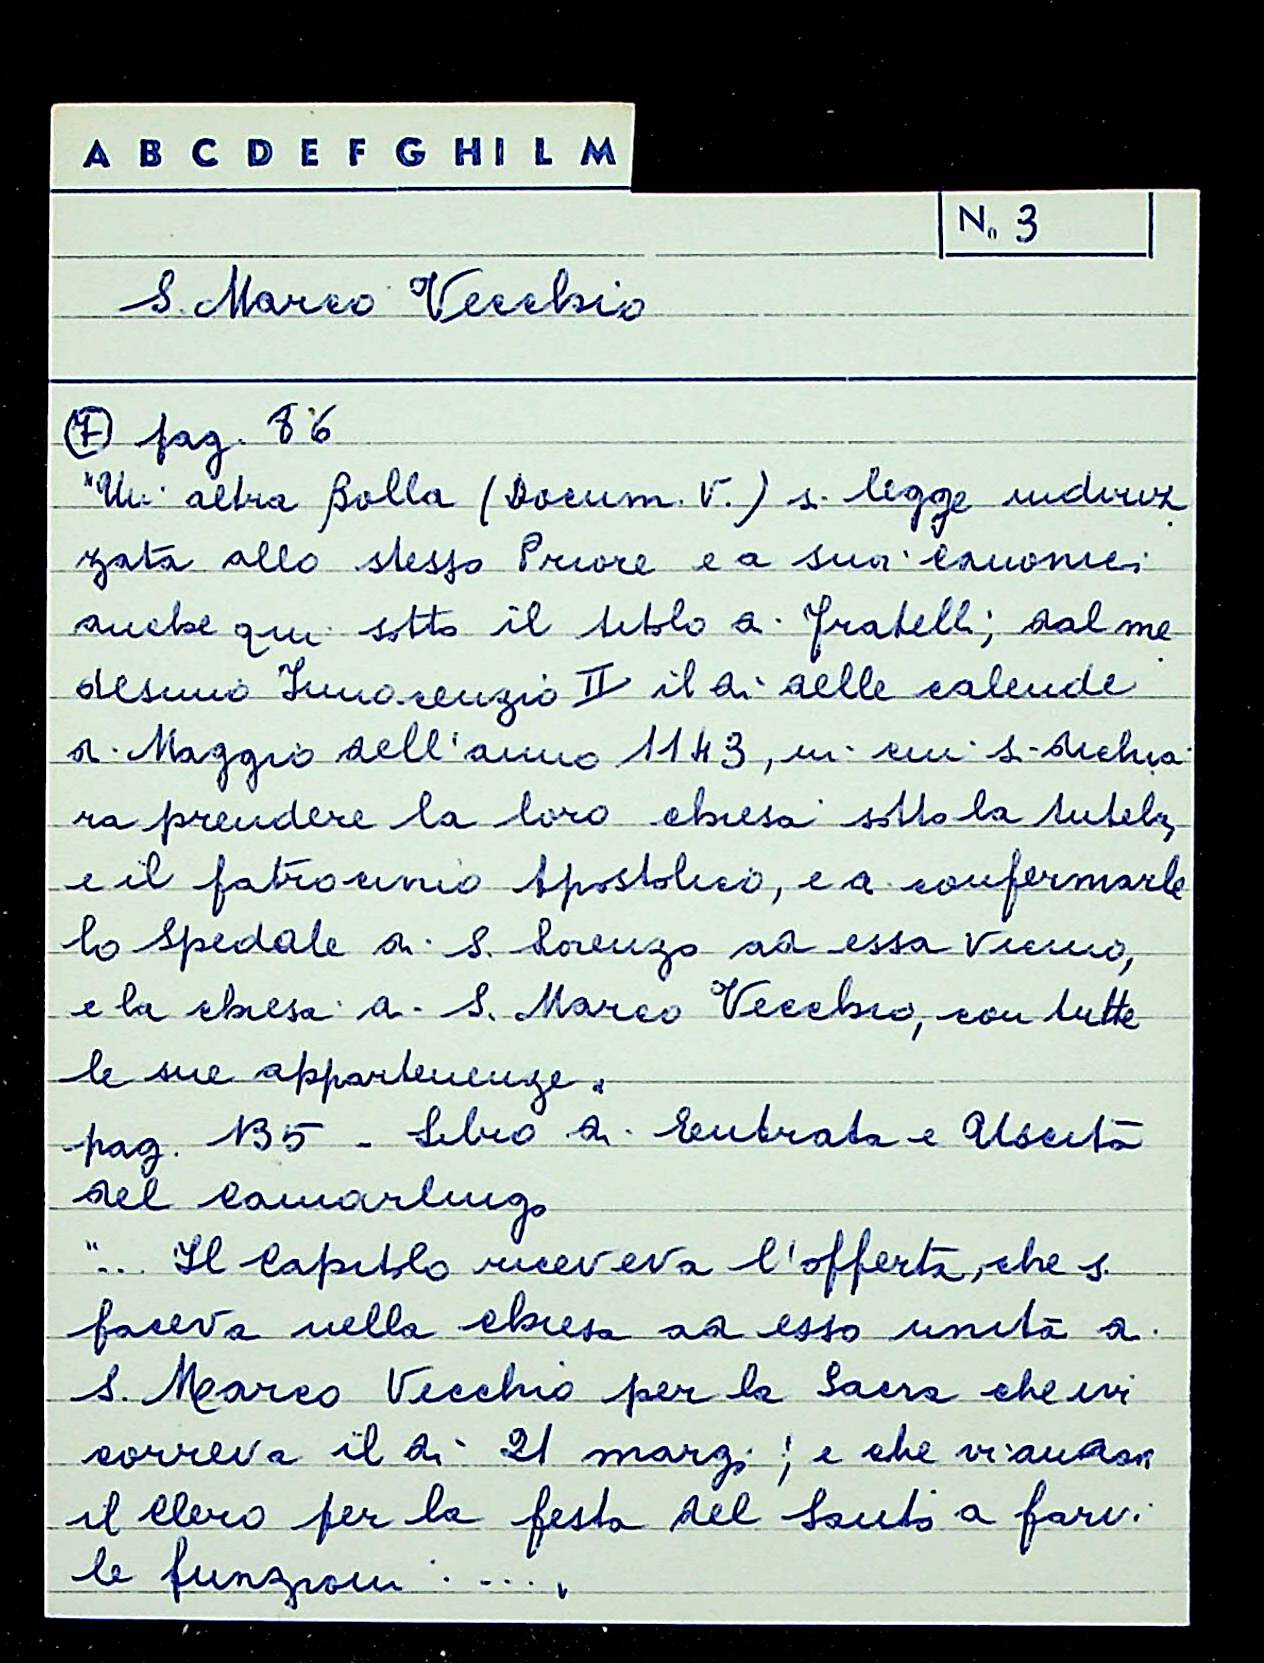 A B C D E F G H I L M
N. 3
S. Marco Vecchio
(7) pag. 86
"Un'altra Bolla (Docum. V.) si legge indiriz
zata allo stesso Priore e a suoi canonici
anche qui sotto il titolo di fratelli; dal me
desimo Innocenzio II il dì delle calende
di Maggio dell'anno 1143, in cui si dichia
ra prendere la loro chiesa sotto la tutela,
e il patrocinio Apostolico, e a confermarle
lo Spedale di S. Lorenzo ad essa vicino,
e la chiesa di S. Marco Vecchio, con tutte
le sue appartenenze.
pag. 135 - Libro di Entrata e Uscita
del Camarlingo
"... Il Capitolo riceveva l'offerta, che si
faceva nella chiesa ad esso unita di
S. Marco Vecchio per la Sacra che ivi
correva il dì 21 marzo; e che vi andava
il Clero per la festa del Santo a farvi
le funzioni ....